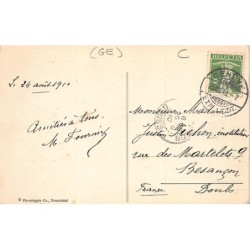 (GE)
C
HELVETIA
Le 24 août 1910
Amitiés à tous.
M. Fournier
Monsieur Madame
Justin Pichon, instituteur
rue des Martelots 9
Besançon
France. Doubs
Phototypie Co., Neuchâtel